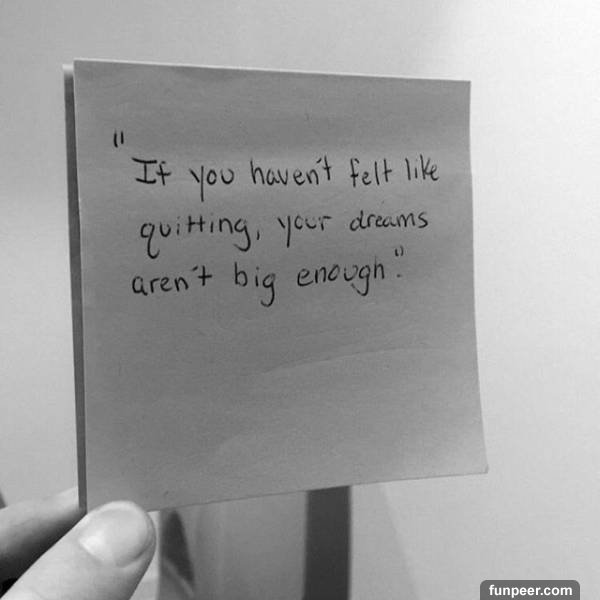 "If you haven't felt like
quitting, your dreams
aren't big enough."
funpeer.com